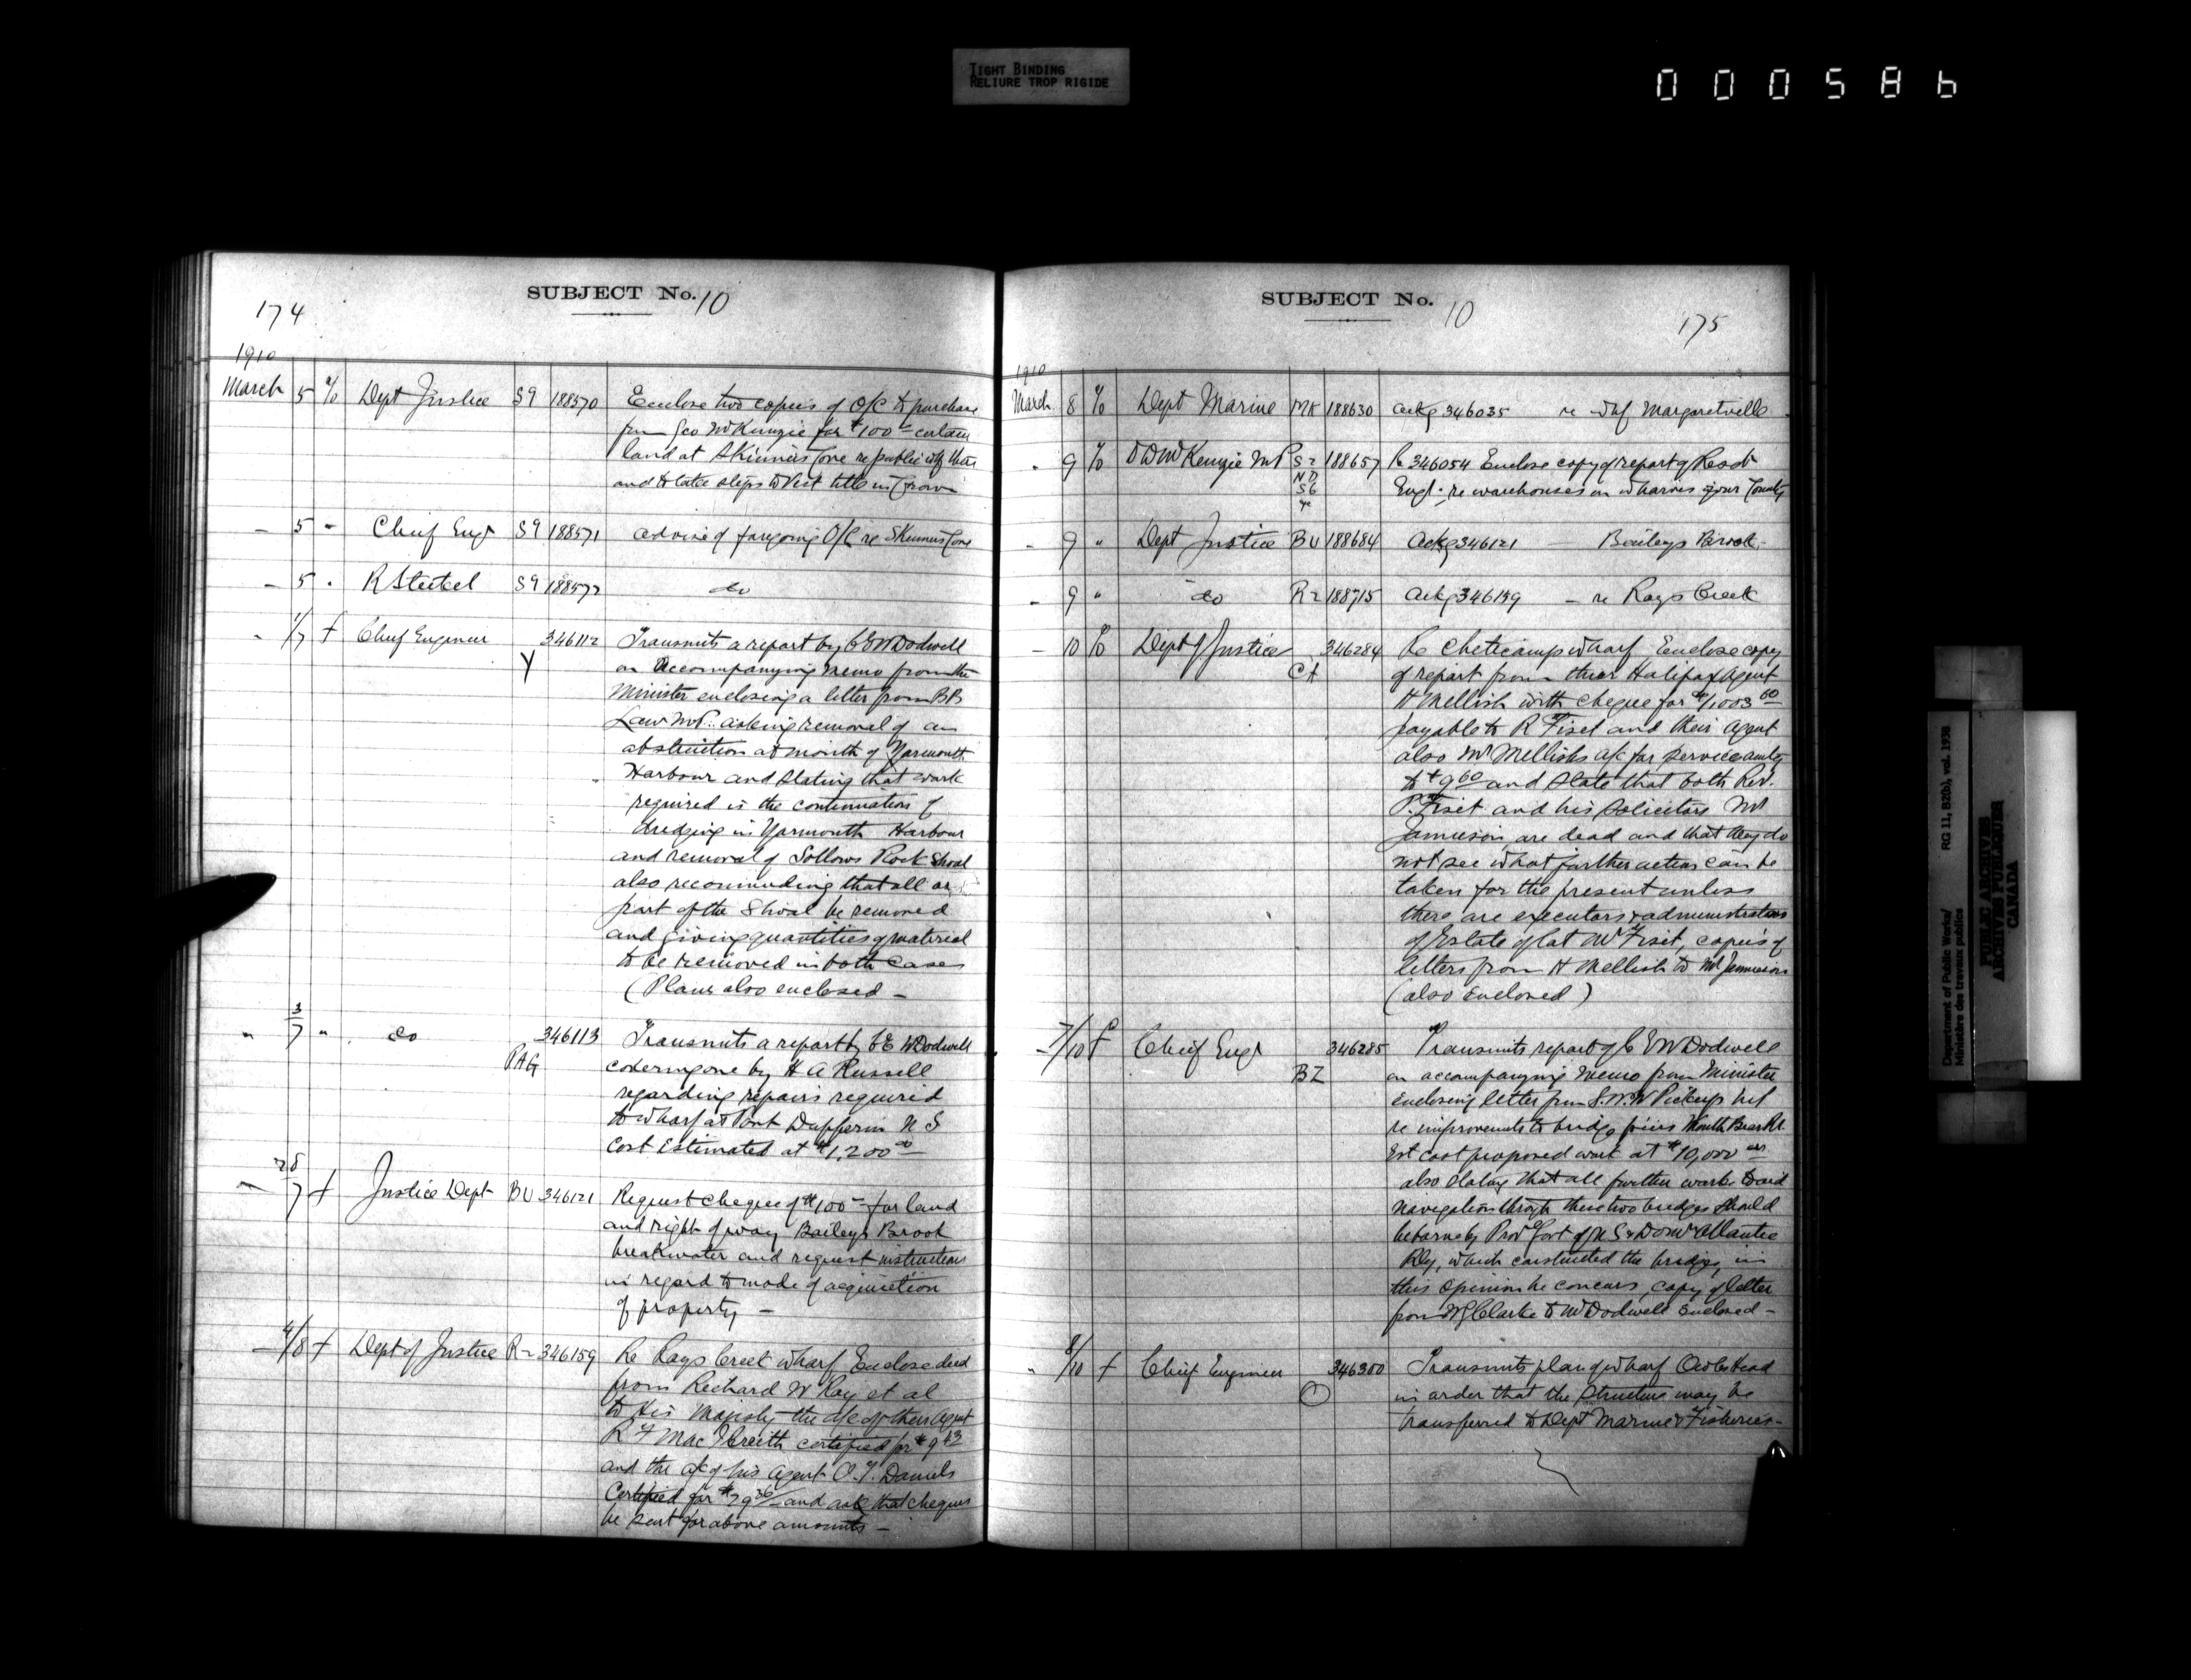 TIGHT BINDING
RELIURE TROP RIGIDE
000586
174
SUBJECT No. 10
1910
March 5 Dept Justice S9 188570 Enclose two copies of O/C to purchase
from Geo McKenzie for $100 certain
land at Skinners Cove re public
and to take steps to vest title in Crown
5 " Chief Engr S9 188571 advise of foregoing O/C re Skinners Cove
5 " R Steckel S9 188572 do
1/7 f Chief Engineer Y 346112 Transmits a report by C E W Dodwell
on accompanying memo from the
Minister enclosing a letter from B B
Law M.P. asking removal of an
obstruction at mouth of Yarmouth
Harbour and stating that work
required is the continuation of
dredging in Yarmouth Harbour
and removal of Sollows Rock Shoal
also recommending that all or
part of the Shoal be removed
and giving quantities of material
to be removed in both cases
(Plans also enclosed —
" 3/7 " do PAG 346113 Transmits a report by C E W Dodwell
covering one by H A Russell
regarding repairs required
to wharf at Port Dufferin N S
Cost Estimated at $1,200 00
28/7 f Justice Dept BU 346121 Request cheque of $100 — for land
and right of way Baileys Brook
breakwater and request instructions
in regard to mode of acquisition
of property —
4/8 f Dept of Justice R2 346159 Re Rays Creek wharf Enclose deed
from Richard W Ray et al
to His Majesty the a/c of their Agent
R F Mac certified for $9 43
and the a/c of his agent O. T. Daniels
Certified for $29 36 and ask that cheques
be sent for above amounts —
SUBJECT No. 10
175
1910
March 8 Dept Marine MK 188630 ackg 346035 re whf Margaretville
" 9 D D McKenzie MP S2 188657 Re 346054 Enclose copy of report of Resdt
ND
S6
Engr. re warehouses on wharves in your County
" 9 " Dept Justice BU 188684 Ackg 346121 — Baileys Brook
" 9 " do R2 188715 Ackg 346159 — re Rays Creek
— 10 Dept of Justice CH 346284 Re Cheticamp wharf Enclose copy
of report from their Halifax Agent
H Mellish with cheque for $1003 60
payable to R Fiset and their agent
also Mr Mellish's a/c for services amtg
to $9 60 and state that both Rev.
P. Fiset and his solicitor Mr
Jamieson, are dead and that they do
not see what further action can be
taken for the present unless
there are executors & administrators
of Estate of lat Mr Fiset, copies of
letters from H Mellish to Mr Jamieson
(also Enclosed)
7/10 f Chief Engr BZ 346285 Transmits report of C E W Dodwell
on accompanying memo from Minister
enclosing letter from S. W. W Pickup MP
re improvements to bridge piers Mouth Bear Rr.
Est cost proposed work at $10,000 00
also stating that all further work to aid
navigation through these two bridges should
be borne by Prov Govt of N S & Domn Atlantic
Rly, which constructed the bridges, in
this opinion he concurs, copy of letter
from W G Clarke to Mr Dodwell Enclosed —
" 8/10 f Chief Engineer O 346300 Transmits plan of wharf Owls Head
in order that the structure may be
transferred to Dept Marine & Fisheries —
Department of Public Works/
Ministère des travaux publics
RG 11, B2(b), vol. 1938
PUBLIC ARCHIVES
ARCHIVES PUBLIQUES
CANADA